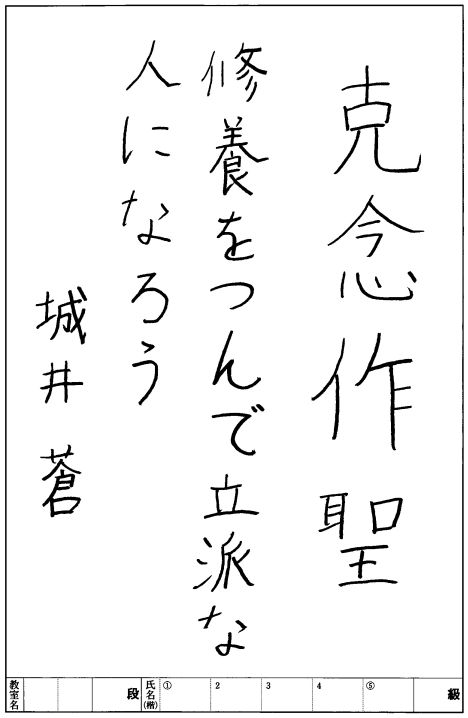 克念作聖
修養をつんで立派な
人になろう
城井 蒼
教室名 段 氏名(楷) ① 2 3 4 ⑤ 級